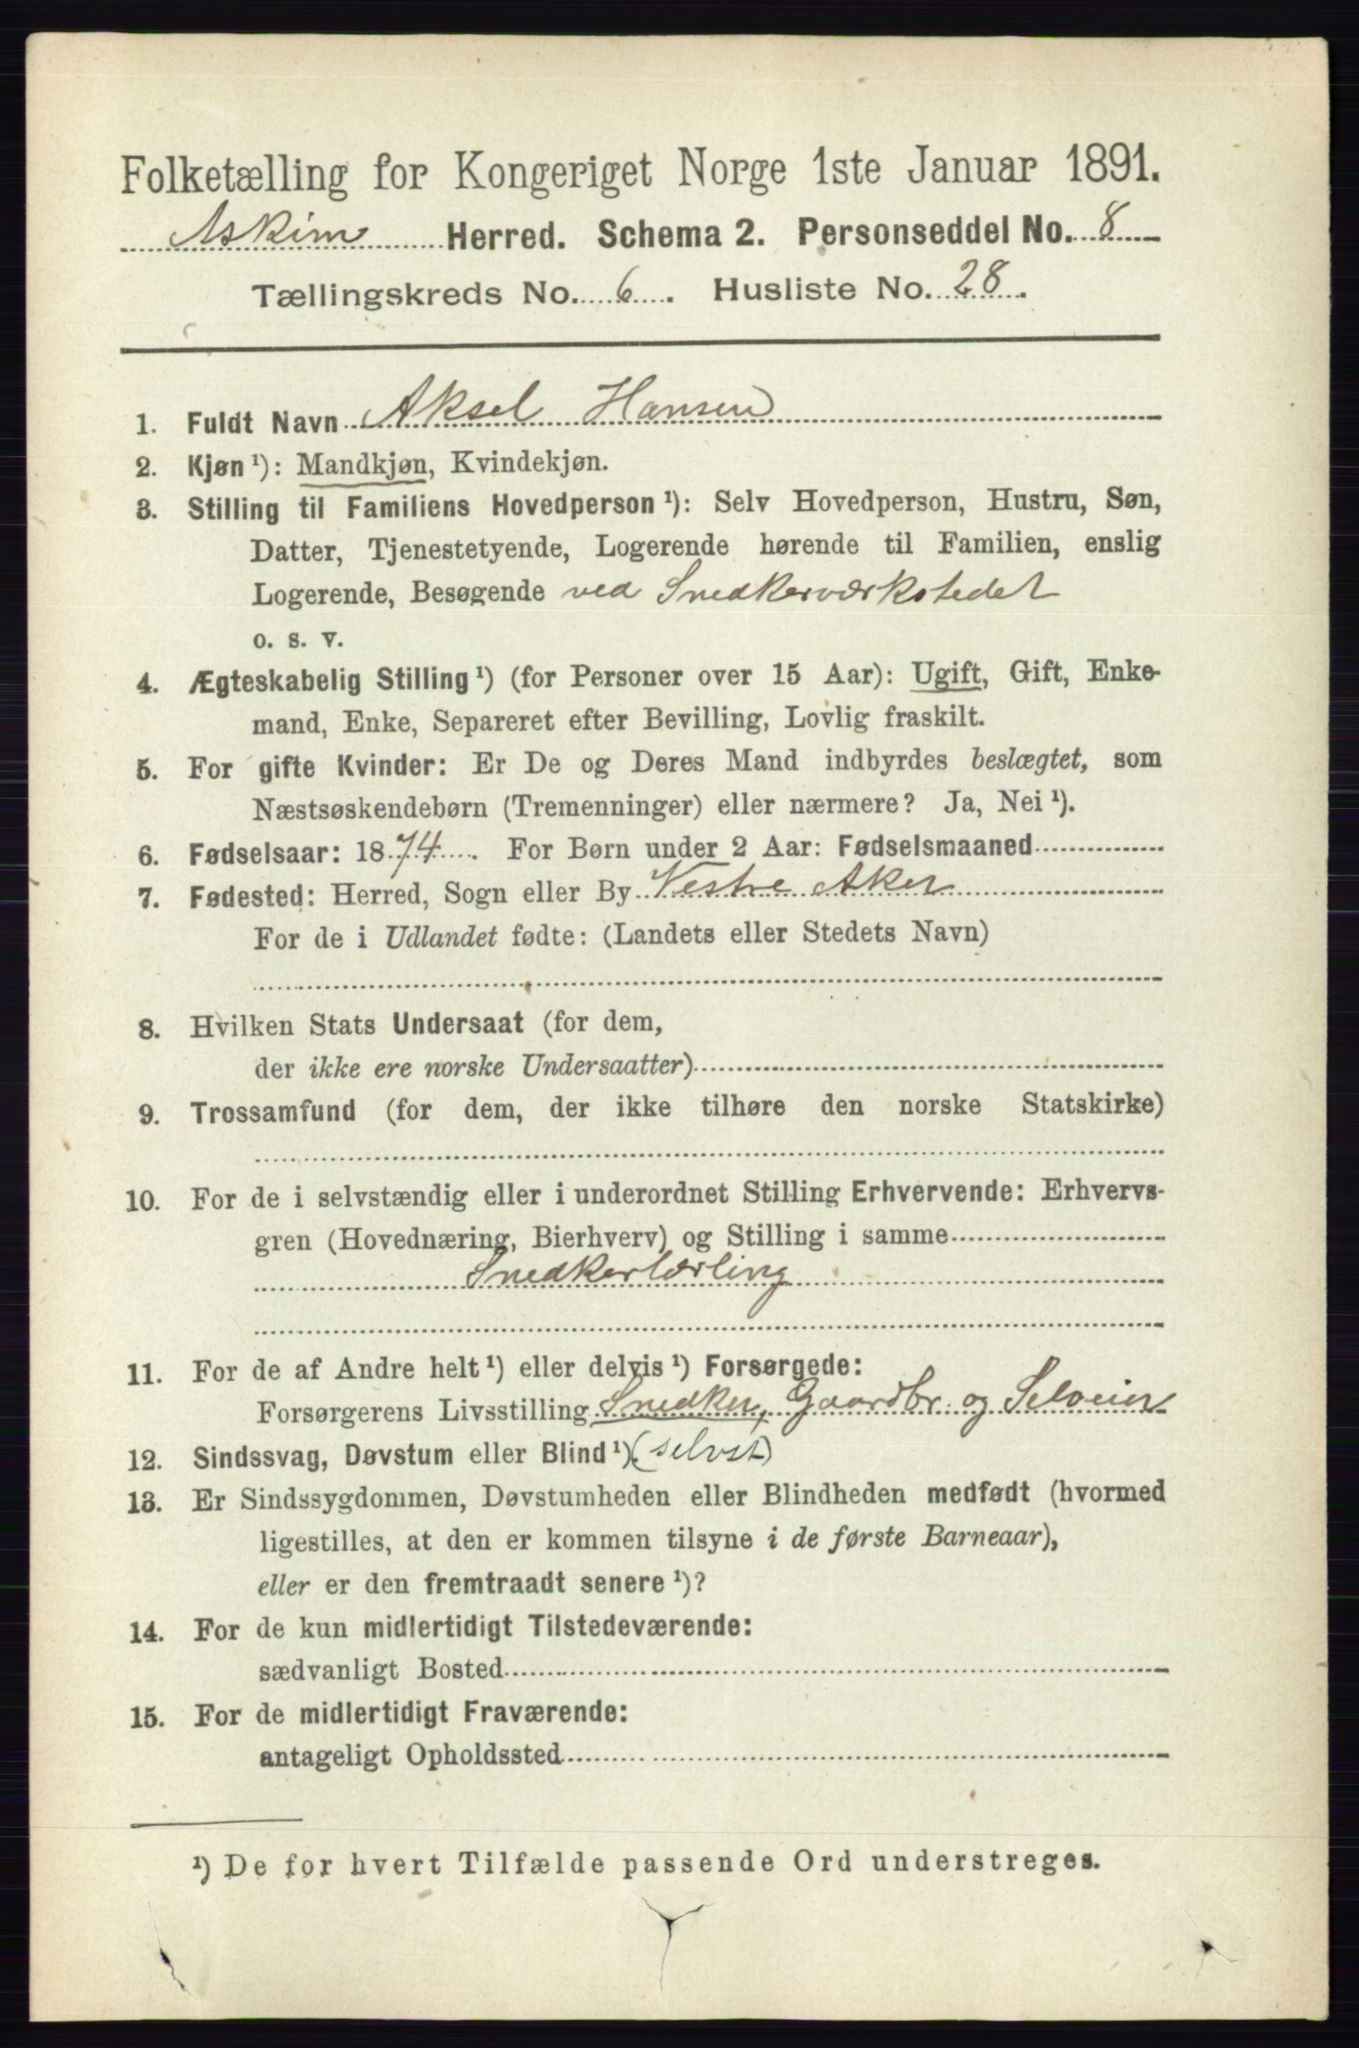 Folketælling for Kongeriget Norge 1ste Januar 1891.
Askim Herred. Schema 2. Personseddel No. 8
Tællingskreds No. 6. Husliste No. 28.
1. Fuldt Navn Aksel Hansen
2. Kjøn ¹): Mandkjøn, Kvindekjøn.
3. Stilling til Familiens Hovedperson ¹): Selv Hovedperson, Hustru, Søn,
Datter, Tjenestetyende, Logerende hørende til Familien, enslig
Logerende, Besøgende ved Snedkerværkstedet
o. s. v.
4. Ægteskabelig Stilling ¹) (for Personer over 15 Aar): Ugift, Gift, Enke-
mand, Enke, Separeret efter Bevilling, Lovlig fraskilt.
5. For gifte Kvinder: Er De og Deres Mand indbyrdes beslægtet, som
Næstsøskendebørn (Tremenninger) eller nærmere? Ja, Nei ¹).
6. Fødselsaar: 1874. For Børn under 2 Aar: Fødselsmaaned
7. Fødested: Herred, Sogn eller By Vestre Aker
For de i Udlandet fødte: (Landets eller Stedets Navn)
8. Hvilken Stats Undersaat (for dem,
der ikke ere norske Undersaatter)
9. Trossamfund (for dem, der ikke tilhøre den norske Statskirke)
10. For de i selvstændig eller i underordnet Stilling Erhvervende: Erhvervs-
gren (Hovednæring, Bierhverv) og Stilling i samme
Snedkerlærling
11. For de af Andre helt ¹) eller delvis ¹) Forsørgede:
Forsørgerens Livsstilling Snedker, Gaardbr. og Selveier
12. Sindssvag, Døvstum eller Blind ¹). (selvst)
13. Er Sindssygdommen, Døvstumheden eller Blindheden medfødt (hvormed
ligestilles, at den er kommen tilsyne i de første Barneaar),
eller er den fremtraadt senere ¹)?
14. For de kun midlertidigt Tilstedeværende:
sædvanligt Bosted
15. For de midlertidigt Fraværende:
antageligt Opholdssted
¹) De for hvert Tilfælde passende Ord understreges.